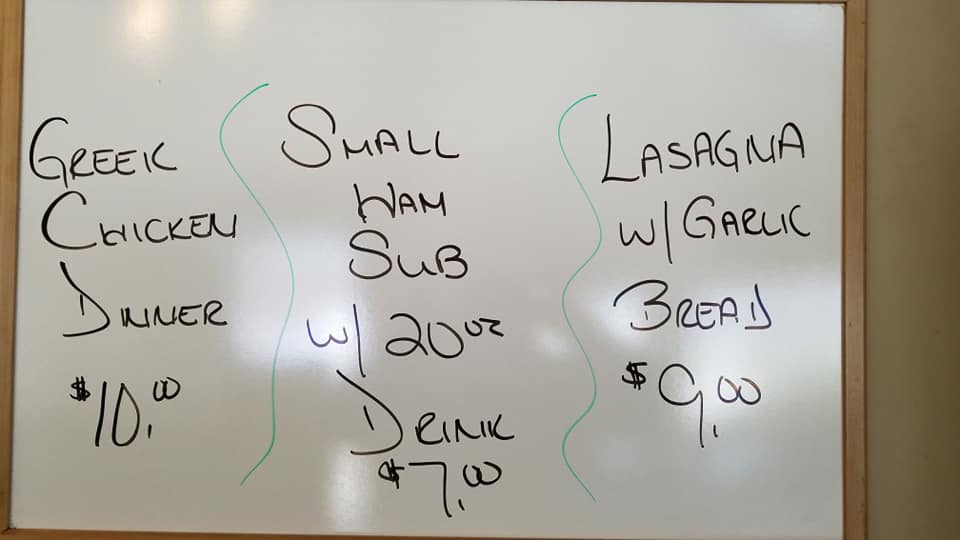 GREEK
CHICKEN
DINNER
$10.00
SMALL
HAM
SUB
W/ 20oz
DRINK
$7.00
LASAGNA
W/ GARLIC
BREAD
$9.00